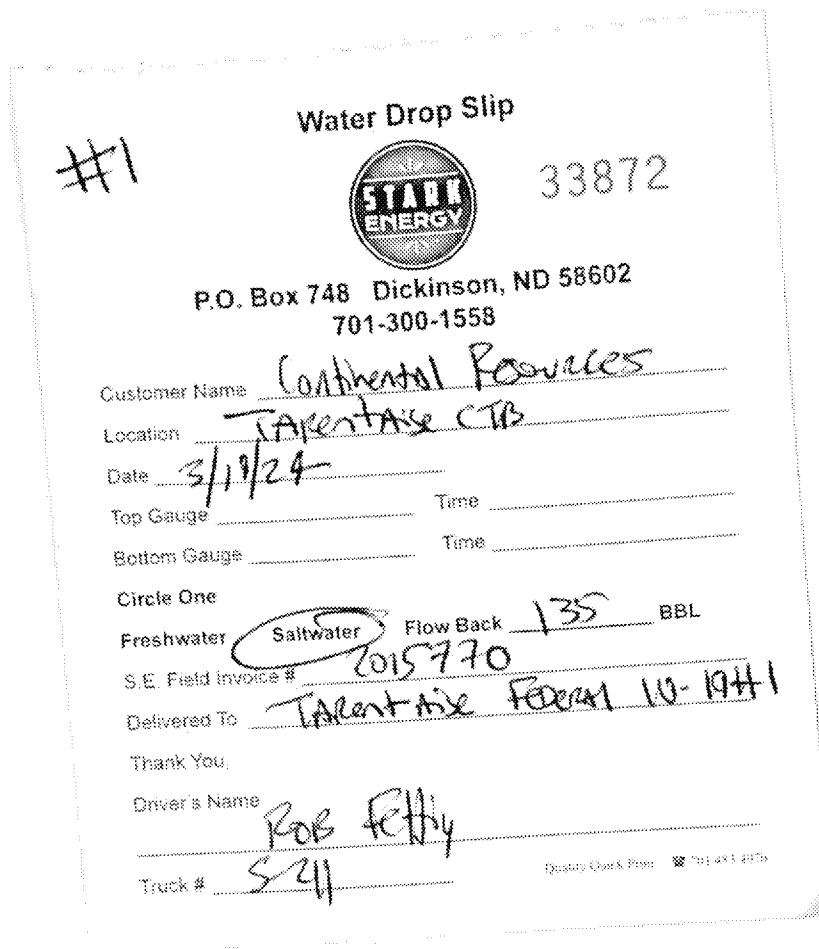 Water Drop Slip
#1
STARK
ENERGY
33872
P.O. Box 748 Dickinson, ND 58602
701-300-1558
Customer Name Continental Resources
Location TArentAise CTB
Date 3/19/24
Top Gauge Time
Bottom Gauge Time
Circle One
Freshwater Saltwater Flow Back 135 BBL
S.E. Field Invoice # 2015770
Delivered To TArentAise FEDERAl 10-19H1
Thank You,
Driver's Name
ROB
Truck # S-211
Quality Quick Print